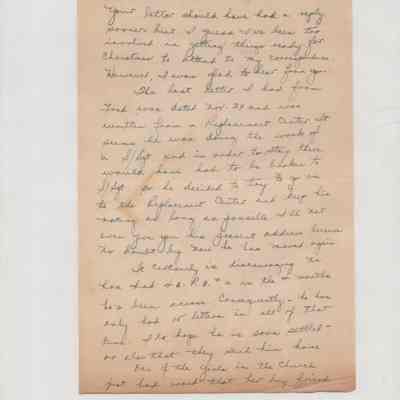 Your letter should have had a reply
sooner but I guess I've been too
involved in getting things ready for
Christmas to attend to my correspondence.
However, I was glad to hear from you.
The last letter I had from
was dated Nov. 29 and was
written from a Replacement Center. It
seems he was doing the work of
a S/Sgt and in order to stay there
would have had to be broken to
so he decided to try & go on
to the Replacement Center and keep his
rating as long as possible. I'll not
even give you his present address because
no doubt by now he has moved again
It certainly is discouraging. He
has had A.P.O. #'s in the months
he's been across. Consequently, he has
only had 10 letters in all of that
time. I do hope he is soon settled -
or else that they send him home
One of the girls in the Church
just had word that her boy friend